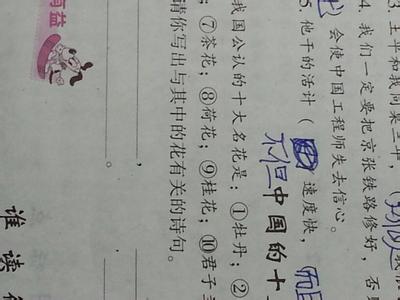 3. 王平和我同桌三年，(
4. 我们一定要把京张铁路修好，否
会使中国工程师失去信心。
5. 他干的活计( 不但 速度快，
中国的十
我国公认的十大名花是：①牡丹；②
；⑦茶花；⑧荷花；⑨桂花；⑩君子
请你写出与其中的花有关的诗句。
有益
谁读